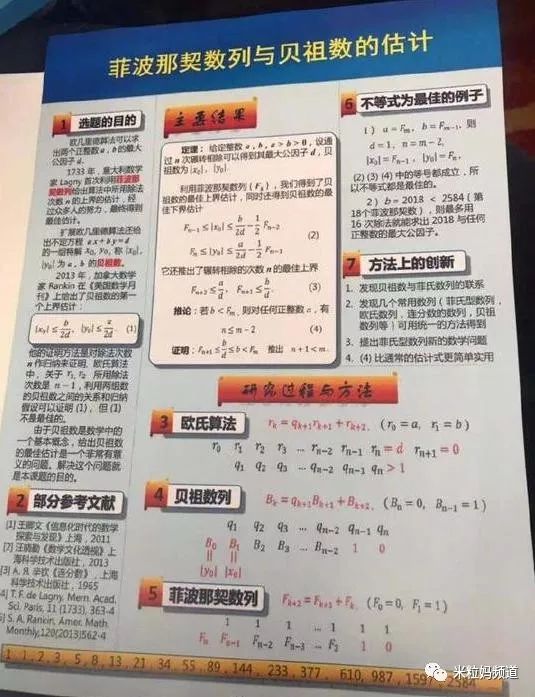 菲波那契数列与贝祖数的估计
1 选题的目的
欧几里德算法可以求
出两个正整数 a , b 的最大
公因子 d .
1733 年，意大利数学
家 Lagny 首次利用菲波那
契数列给出算中所用除法
次数 n 的上界的估计，经
过众多人的努力，最终得到
最佳估计。
扩展欧几里德算法还给
出不定方程 ax+by=d
的一组特解 x₀, y₀, 称 |x₀|,
|y₀| 为 a , b 的贝祖数。
2013 年，加拿大数学
家 Rankin 在《美国数学月
刊》上给出了贝祖数的第一
个上界估计：
|x₀| ≤ b/2d, |y₀| ≤ a/2d. (1)
他的证明方法是对除法次数
n 作归纳来证明. 欧氏算法
中，关于 r₁, r₂ 所用除法
次数是 n − 1，利用两组数
的贝祖数之间的关系和归纳
假设可以证明 (1)，但 (1)
不是最佳的。
由于贝祖数是数学中的
一个基本概念，给出贝祖数
的最佳估计是一个非常有意
义的问题。解决这个问题就
是本课题的目的。
2 部分参考文献
[1] 王卿文《信息化时代的数学
探索与发现》上海，2011
[2] 汪晓勤《数学文化透视》上
海科学技术出版社，2013
[3] А. Я. 辛钦《连分数》，上海
科学技术出版社，1965
4] T. F. de Lagny. Mem. Acad.
Sci. Paris, 11 (1733), 363-4
5] S. A. Rankin, Amer. Math.
Monthly,120(2013)562-4
主要结果
定理：给定整数 a , b , a > b > 0，设通
过 n 次辗转相除可以得到其最大公因子 d，贝
祖数为 |x₀|, |y₀|.
利用菲波那契数列 (Fₖ)，我们得到了贝
祖数的最佳上界估计，同时还得到贝祖数的最
佳下界估计
Fₙ₋₁ ≤ |x₀| ≤ b/2d − 1/2 Fₙ₋₂
(2)
Fₙ ≤ |y₀| ≤ a/2d − 1/2 Fₙ₋₁
它还推出了辗转相除的次数 n 的最佳上界
Fₙ₊₂ ≤ a/d, Fₙ₊₁ ≤ b/d. (3)
推论：若 b < Fₘ, 则对任何正整数 a，有
n ≤ m − 2 (4)
证明：Fₙ₊₁ ≤ b/d ≤ b < Fₘ 推出 n + 1 < m.
6 不等式为最佳的例子
1) a = Fₘ, b = Fₘ₋₁, 则
d = 1, n = m − 2,
|x₀| = Fₙ₋₁, |y₀| = Fₙ.
(2) (3) (4) 中的等号都成立，所
以不等式都是最佳的。
2) b = 2018 < 2584 (第
18个菲波那契数)，则最多用
16 次除法就能求出 2018 与任何
正整数的最大公因子。
7 方法上的创新
1. 发现贝祖数与菲氏数列的联系
2. 发现几个常用数列（菲氏型数列，
欧氏数列，连分数的数列，贝祖
数列等）可用统一的方法得到
3. 提出菲氏型数列新的数学问题
4. (4) 比通常的估计式更简单实用
研究过程与方法
3 欧氏算法 rₖ = qₖ₊₁rₖ₊₁ + rₖ₊₂, (r₀ = a, r₁ = b)
r₀ r₁ r₂ r₃ ... rₙ₋₂ rₙ₋₁ rₙ = d rₙ₊₁ = 0
q₁ q₂ q₃ ... qₙ₋₂ qₙ₋₁ qₙ > 1
4 贝祖数列 Bₖ = qₖ₊₁Bₖ₊₁ + Bₖ₊₂, (Bₙ = 0, Bₙ₋₁ = 1)
q₁ q₂ q₃ ... qₙ₋₂ qₙ₋₁ qₙ
B₀ B₁ B₂ B₃ ... Bₙ₋₂ 1 0
|| ||
|y₀| |x₀|
5 菲波那契数列 Fₖ₊₂ = Fₖ₊₁ + Fₖ, (F₀ = 0, F₁ = 1)
1 1 1 ... 1 1 1
Fₙ Fₙ₋₁ Fₙ₋₂ Fₙ₋₃ ... F₂ 1 0
1, 1, 2, 3, 5, 8, 13, 21, 34, 55, 89, 144, 233, 377, 610, 987, 1597, 2584
米粒妈频道